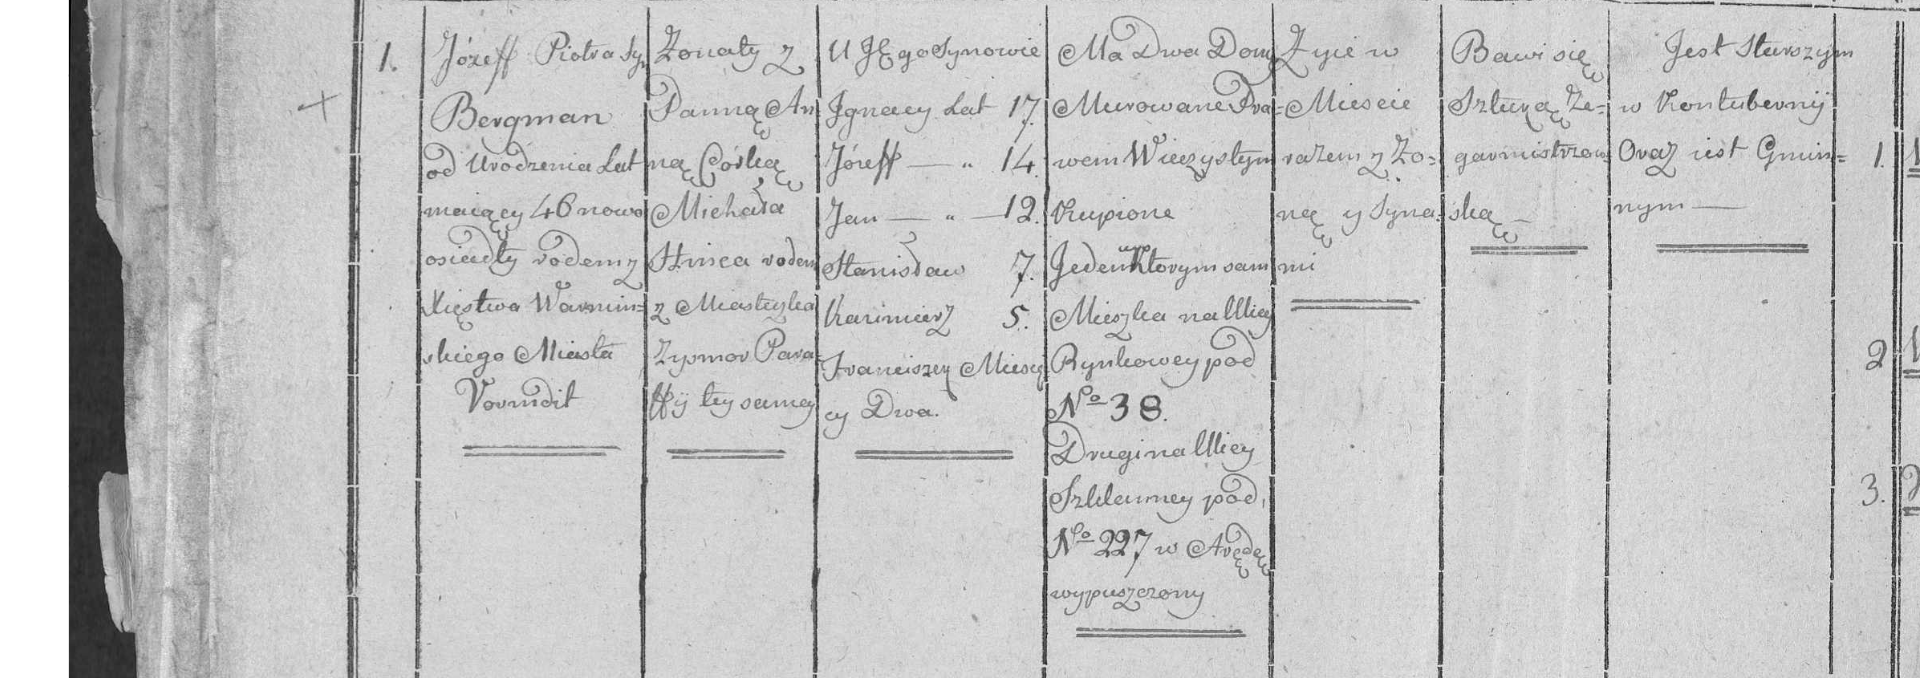 1.
Józeff Piotra Sy.
Bergman
od Urodzenia Lat
maiący 46 nowo
osiadły rodem z
Xięstwa Warmin=
skiego Miasta
Vormdit
Zonaty z
Panną An-
ną Córką
Michała
Hnica rodem
z Miasteczka
Zyzmor Para=
ffij tey samey
U JEgo Synowie
Jgnacy Lat 17.
Józeff — „ 14.
Jan — „ — 12.
Stanisław 7.
Kazimierz 5.
Franciszek Miesię
cy Dwa.
Ma Dwa Domy
Murowane Pra=
wem Wieczystym
Kupione
Jeden w Ktorym sam
Mieszka na Ulicy
Rynkowey pod
No 38.
Drugi na Ulicy
Szklanney pod,
No 227 w Arędę
wypuszczony
Zyie w
Miescie
razem z Zo=
ną y Syna-
mi
Bawi się
Sztuką Ze=
garmistrzow
ską —
Jest Starszym
w Kontubernij
Oraz iest Gmin=
nym —
1.
2
3.